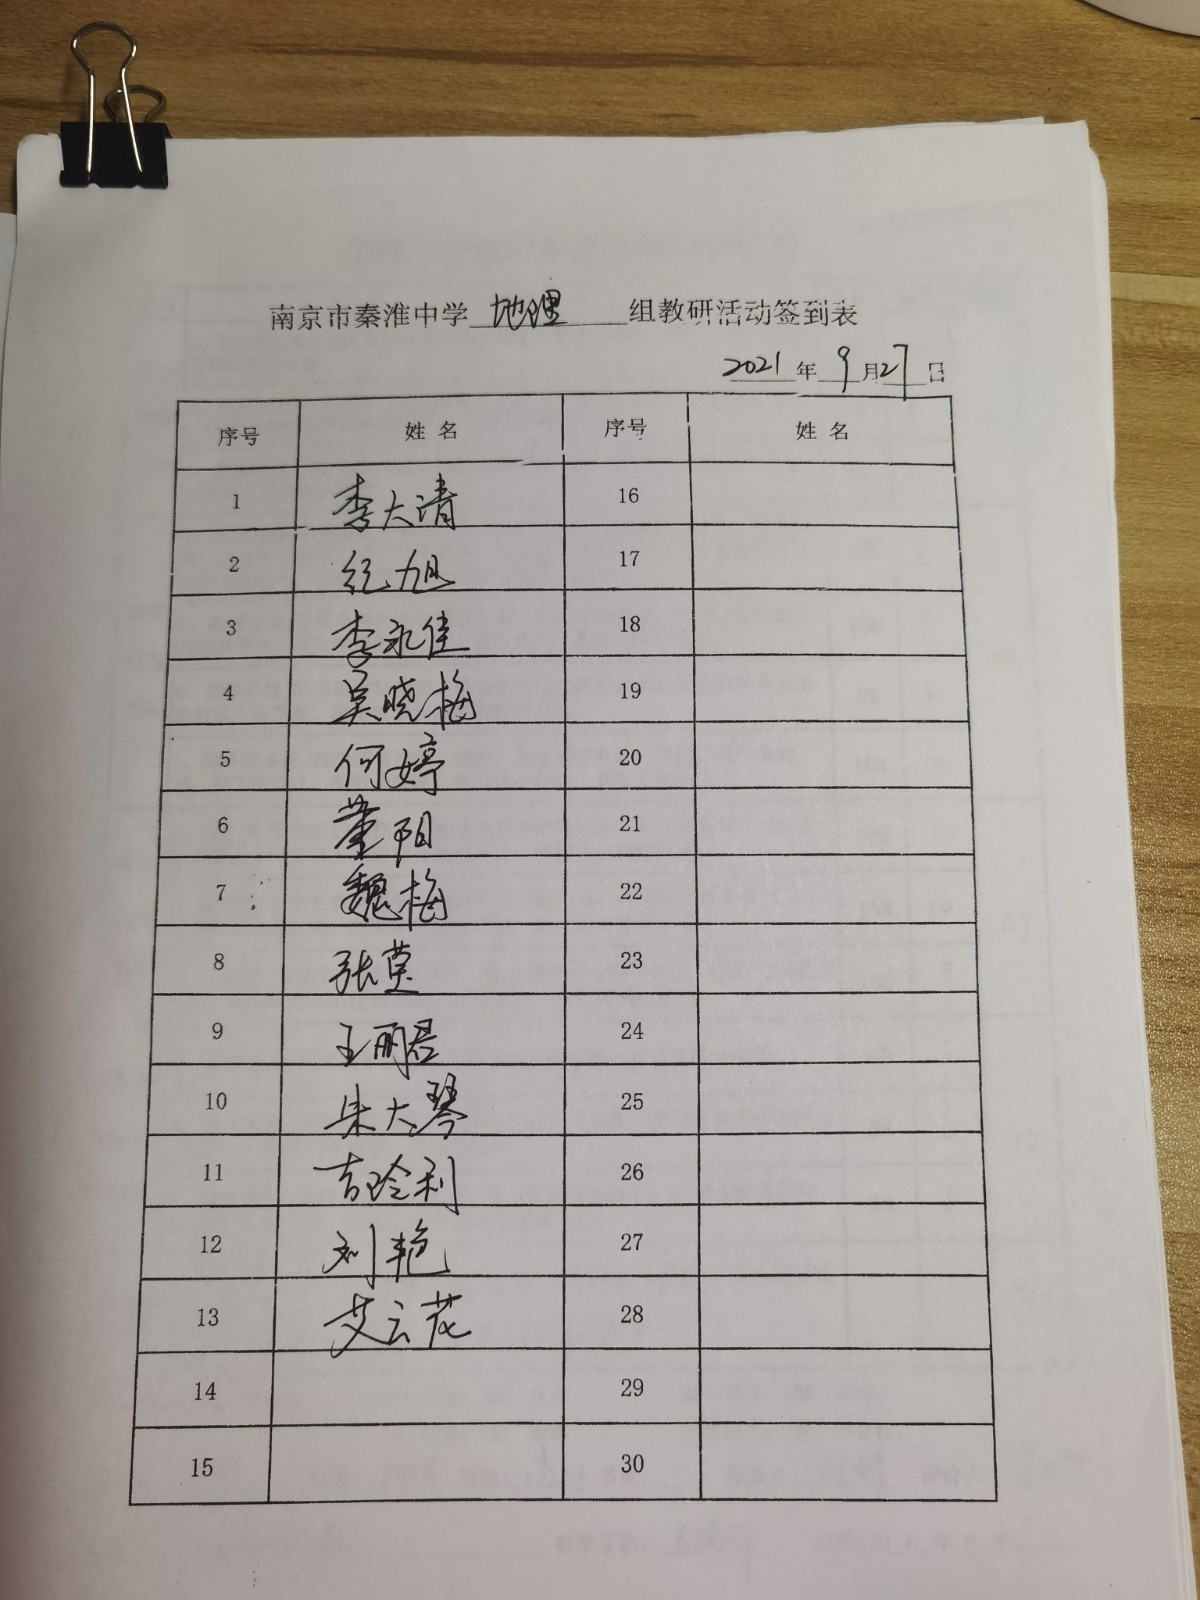 南京市秦淮中学 地理 组教研活动签到表
2021 年 9 月 27 日
序号 姓 名 序号 姓 名
1 李大清 16
2 纪旭 17
3 李永佳 18
4 吴晓梅 19
5 何婷 20
6 董阳 21
7 魏梅 22
8 张莫 23
9 王丽君 24
10 朱大琴 25
11 吉玲利 26
12 刘艳 27
13 艾云花 28
14 29
15 30